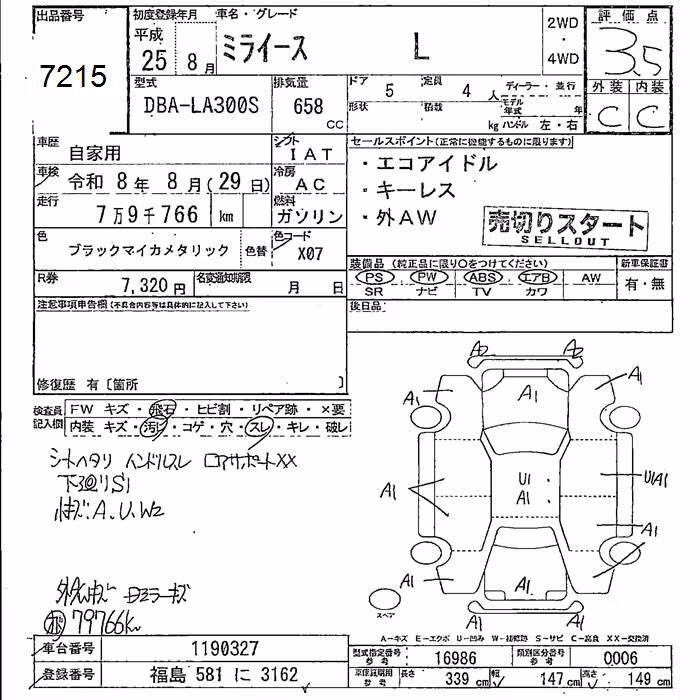 出品番号
7215
初度登録年月
平成
25年 8月
車名・グレード
ミライース L
2WD
・
4WD
評価点
3.5
外装 内装
C C
型式
DBA-LA300S
排気量
658
CC
ドア 5 定員 4人
形状 積載 kg
ディーラー・並行
モデル年式 年
ハンドル 左・右
車歴
自家用
シフト
IAT
車検 令和 8年 8月(29日)
冷房
AC
走行
7万9千766 km
燃料
ガソリン
色
ブラックマイカメタリック
色替
色コード
X07
R券
7,320円
名変通知期限
月 日
セールスポイント(正常に機能するものに限ります)
・エコアイドル
・キーレス
・外AW
売切りスタート
SELLOUT
装備品 (純正品に限り○をつけてください)
PS PW ABS エアB AW
SR ナビ TV カワ
新車保証書
有・無
後日品
注意事項申告欄(不具合内容等は具体的に記入して下さい)
修復歴 有〔箇所 〕
検査員
記入欄
FW キズ・飛石・ヒビ割・リペア跡・×要
内装 キズ・汚レ・コゲ・穴・スレ・キレ・破レ
シートヘタリ ハンドルスレ コアサポートXX
下廻リS1
小キズ.A.U.W2
79766K
A2 A2
A1 A1 A1
A1 U1 A1 U1A1
A1
A1 A1
A1 A1
スペア
A-キズ E-エクボ U-凹み W-補修跡 S-サビ C-腐食 XX-交換済
車台番号 1190327
登録番号 福島 581 に 3162
型式指定番号
参考
16986
類別区分番号
参考
0006
車検証記載用
参考
長さ 339cm 幅 147cm 高さ 149cm